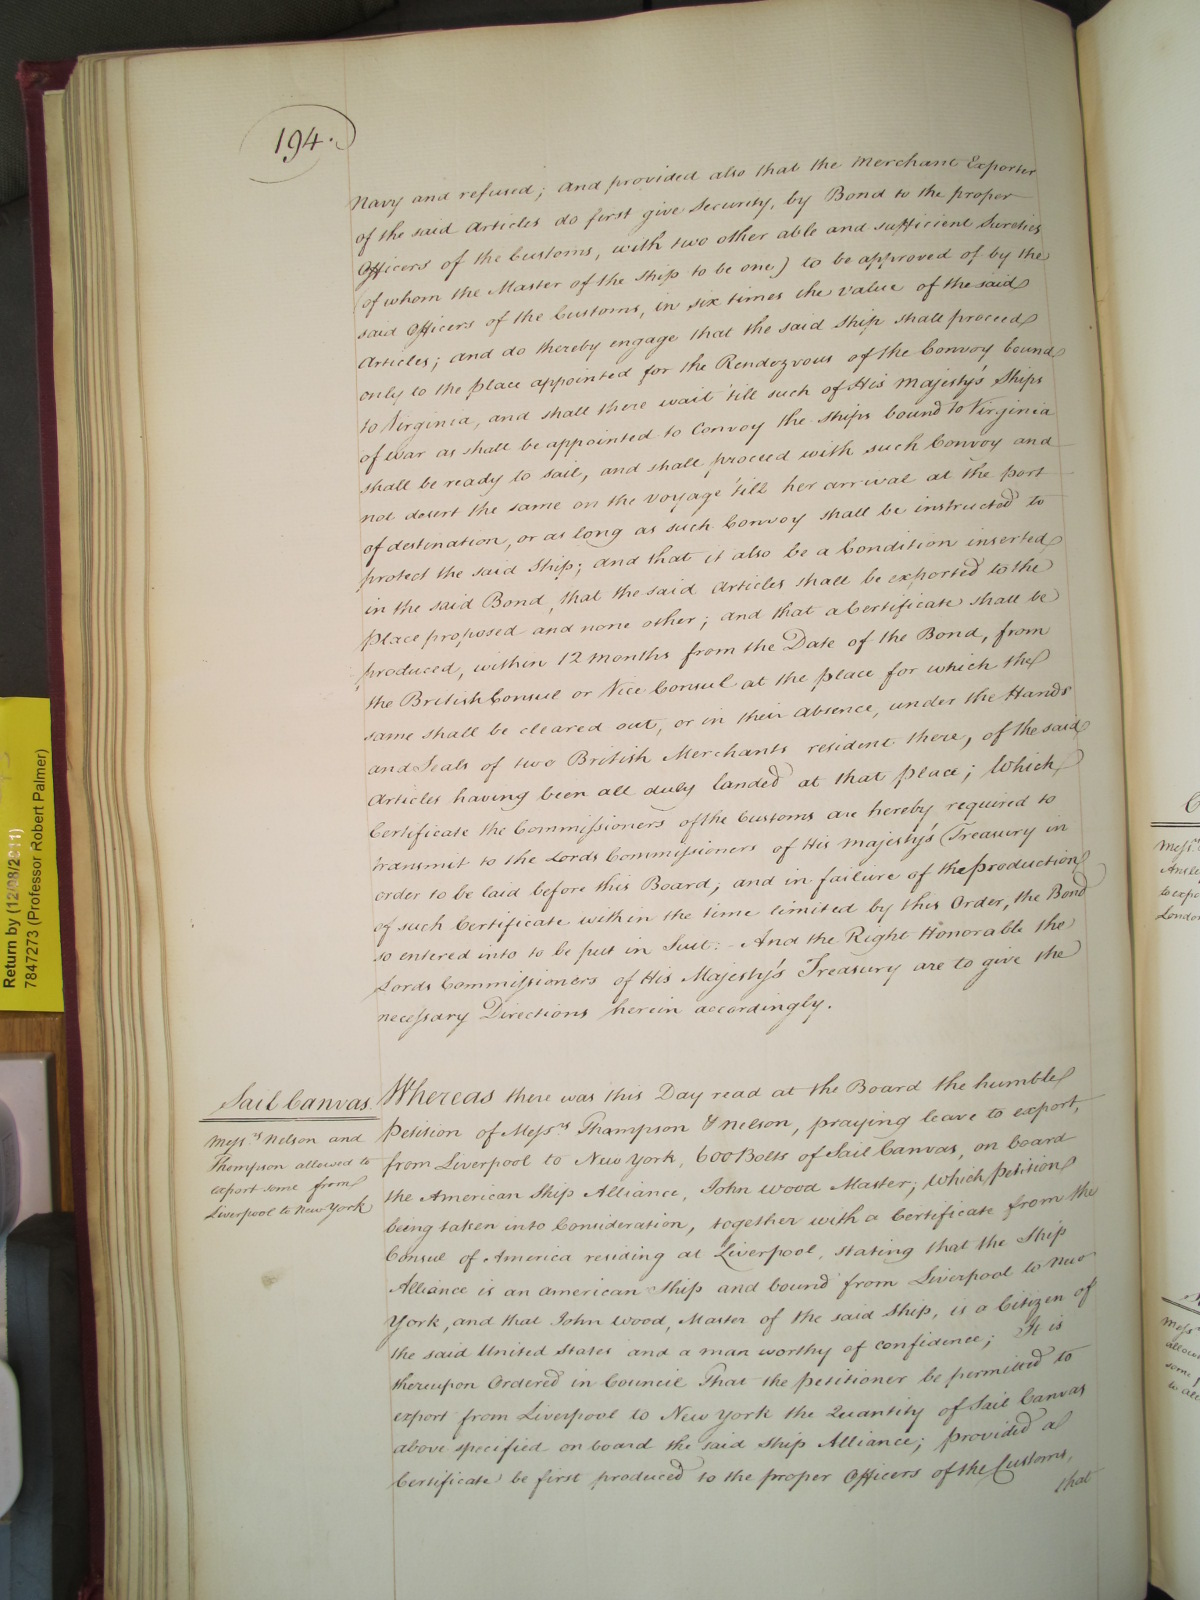 194.
Navy and refused; and provided also that the Merchant Exporter
of the said Articles do first give Security, by Bond to the proper
Officers of the Customs, with two other able and sufficient Sureties
(of whom the Master of the Ship to be one) to be approved of by the
said Officers of the Customs, in six times the value of the said
Articles; and do thereby engage that the said Ship shall proceed
only to the place appointed for the Rendezvous of the Convoy bound
to Virginia, and shall there wait 'till such of His Majesty's Ships
of War as shall be appointed to Convoy the Ships bound to Virginia
shall be ready to sail, and shall proceed with such Convoy and
not desert the same on the Voyage 'till her arrival at the port
of destination, or as long as such Convoy shall be instructed to
protect the said Ship; and that it also be a Condition inserted
in the said Bond, that the said Articles shall be exported to the
Place proposed and none other; and that a Certificate shall be
produced, within 12 Months from the Date of the Bond, from
the British Consul or Vice Consul at the place for which the
same shall be cleared out, or in their absence, under the Hands
and Seals of two British Merchants resident there, of the said
Articles having been all duly landed at that place; Which
Certificate the Commissioners of the Customs are hereby required to
transmit to the Lords Commissioners of His Majesty's Treasury in
order to be laid before this Board; and in failure of the production
of such Certificate within the time limited by this Order, the Bond
so entered into to be put in Suit. - And the Right Honorable the
Lords Commissioners of His Majesty's Treasury are to give the
necessary Directions herein accordingly.
Sail Canvas
Mess.rs Nelson and
Thompson allowed to
export some from
Liverpool to New York
Whereas there was this Day read at the Board the humble
Petition of Mess.rs Thampson & Nelson, praying leave to export,
from Liverpool to New York, 600 Bolts of Sail Canvas, on board
the American Ship Alliance, John Wood Master; Which Petition
being taken into Consideration, together with a Certificate from the
Consul of America residing at Liverpool, stating that the Ship
Alliance is an american Ship and bound from Liverpool to New
York, and that John Wood, Master of the said Ship, is a Citizen of
the said United States and a man worthy of confidence; It is
thereupon Ordered in Council That the petitioner be permitted to
export from Liverpool to New York the Quantity of Sail Canvas
above specified on board the said Ship Alliance; provided a
Certificate be first produced to the proper Officers of the Customs,
that
Return by (12/08/2011)
7847273 (Professor Robert Palmer)
Mess.rs
to expo
London
Mess.rs
allow
some